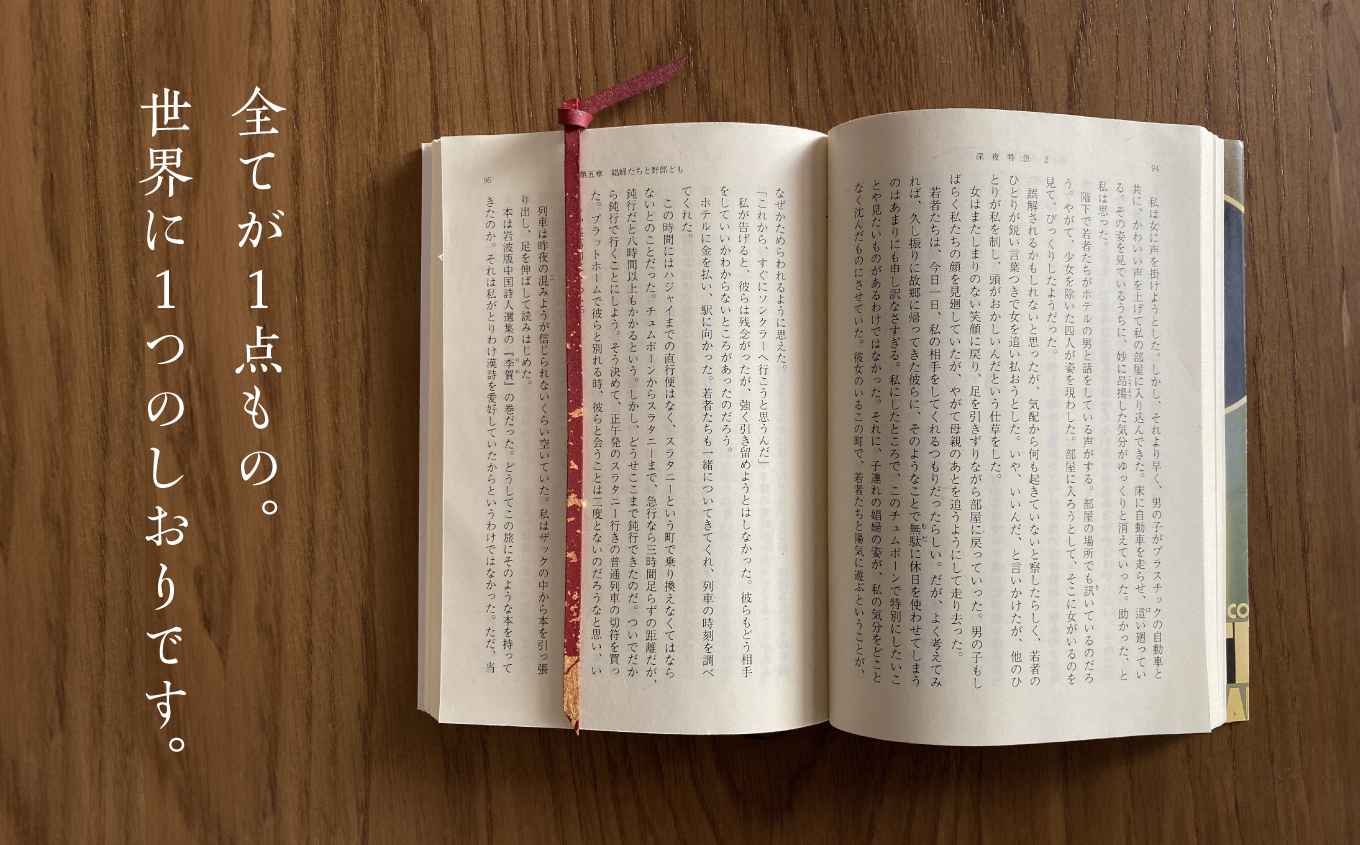 全てが１点もの。
世界に１つのしおりです。
深夜特急 2
94
私は女に声を掛けようとした。しかし、それより早く、男の子がプラスチックの自動車と
共に、かわいい声を上げて私の部屋に入り込んできた。床に自動車を走らせ、這い廻ってい
る。その姿を見ているうちに、妙に昂揚した気分がゆっくりと消えていった。助かった、と
私は思った。
階下で若者たちがホテルの男と話をしている声がする。部屋の場所でも訊いているのだろ
う。やがて、少女を除いた四人が姿を現わした。部屋に入ろうとして、そこに女がいるのを
見て、びっくりしたようだった。
誤解されるかもしれないと思ったが、気配から何も起きていないと察したらしく、若者の
ひとりが鋭い言葉つきで女を追い払おうとした。いや、いいんだ、と言いかけたが、他のひ
とりが私を制し、頭がおかしいんだという仕草をした。
女はまたしまりのない笑顔に戻り、足を引きずりながら部屋に戻っていった。男の子もし
ばらく私たちの顔を見廻していたが、やがて母親のあとを追うようにして走り去った。
若者たちは、今日一日、私の相手をしてくれるつもりだったらしい。だが、よく考えてみ
れば、久し振りに故郷に帰ってきた彼らに、そのようなことで無駄に休日を使わせてしまう
のはあまりにも申し訳なさすぎる。私にしたところで、このチュムポーンで特別にしたいこ
とや見たいものがあるわけではなかった。それに、子連れの娼婦の姿が、私の気分をどこと
なく沈んだものにさせていた。彼女のいるこの町で、若者たちと陽気に遊ぶということが、
第五章 娼婦たちと野郎ども
95
なぜかためらわれるように思えた。
「これから、すぐにソンクラーへ行こうと思うんだ」
私が告げると、彼らは残念がったが、強く引き留めようとはしなかった。彼らもどう相手
をしていいかわからないところがあったのだろう。
ホテルに金を払い、駅に向かった。若者たちも一緒についてきてくれ、列車の時刻を調べ
てくれた。
この時間にはハジャイまでの直行便はなく、スラタニーという町で乗り換えなくてはなら
ないとのことだった。チュムポーンからスラタニーまで、急行なら三時間足らずの距離だが、
鈍行だと八時間以上もかかるという。しかし、どうせここまで鈍行できたのだ。ついでだか
ら鈍行で行くことにしよう。そう決めて、正午発のスラタニー行きの普通列車の切符を買っ
た。プラットホームで彼らと別れる時、彼らと会うことは二度とないのだろうなと思い、い
列車は昨夜の混みようが信じられないくらい空いていた。私はザックの中から本を引っ張
り出し、足を伸ばして読みはじめた。
本は岩波版中国詩人選集の『李賀』の巻だった。どうしてこの旅にそのような本を持って
きたのか。それは私がとりわけ漢詩を愛好していたからというわけではなかった。ただ、当
CO